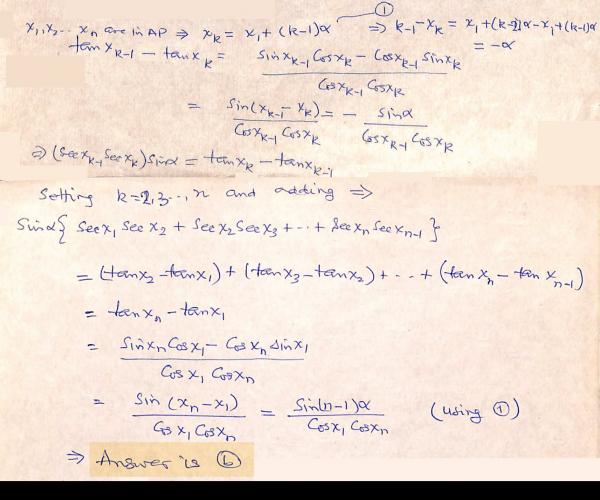 ①
x₁, x₂... xₙ are in AP ⇒ xₖ = x₁ + (k-1)α ⇒ k-1 - xₖ = x₁+(k-2)α - x₁+(k-1)α
= -α
tan xₖ₋₁ - tan xₖ = (Sin xₖ₋₁ Cos xₖ - Cos xₖ₋₁ Sin xₖ) / (Cos xₖ₋₁ Cos xₖ)
= Sin(xₖ₋₁ - xₖ) / (Cos xₖ₋₁ Cos xₖ) = - Sin α / (Cos xₖ₋₁ Cos xₖ)
⇒ (Sec xₖ₋₁ Sec xₖ) Sin α = tan xₖ - tan xₖ₋₁
Setting k=2,3..,n and adding ⇒
Sin α { Sec x₁ Sec x₂ + Sec x₂ Sec x₃ + ... + Sec xₙ Sec xₙ₋₁ }
= (tan x₂ - tan x₁) + (tan x₃ - tan x₂) + ... + (tan xₙ - tan xₙ₋₁)
= tan xₙ - tan x₁
= (Sin xₙ Cos x₁ - Cos xₙ Sin x₁) / (Cos x₁ Cos xₙ)
= Sin (xₙ - x₁) / (Cos x₁ Cos xₙ) = Sin(n-1)α / (Cos x₁ Cos xₙ) (using ①)
⇒ Answer is ⓑ